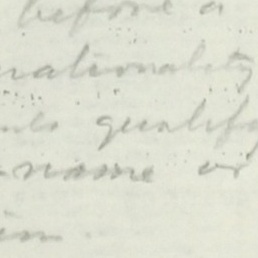 before a
nationality
qualify
name or